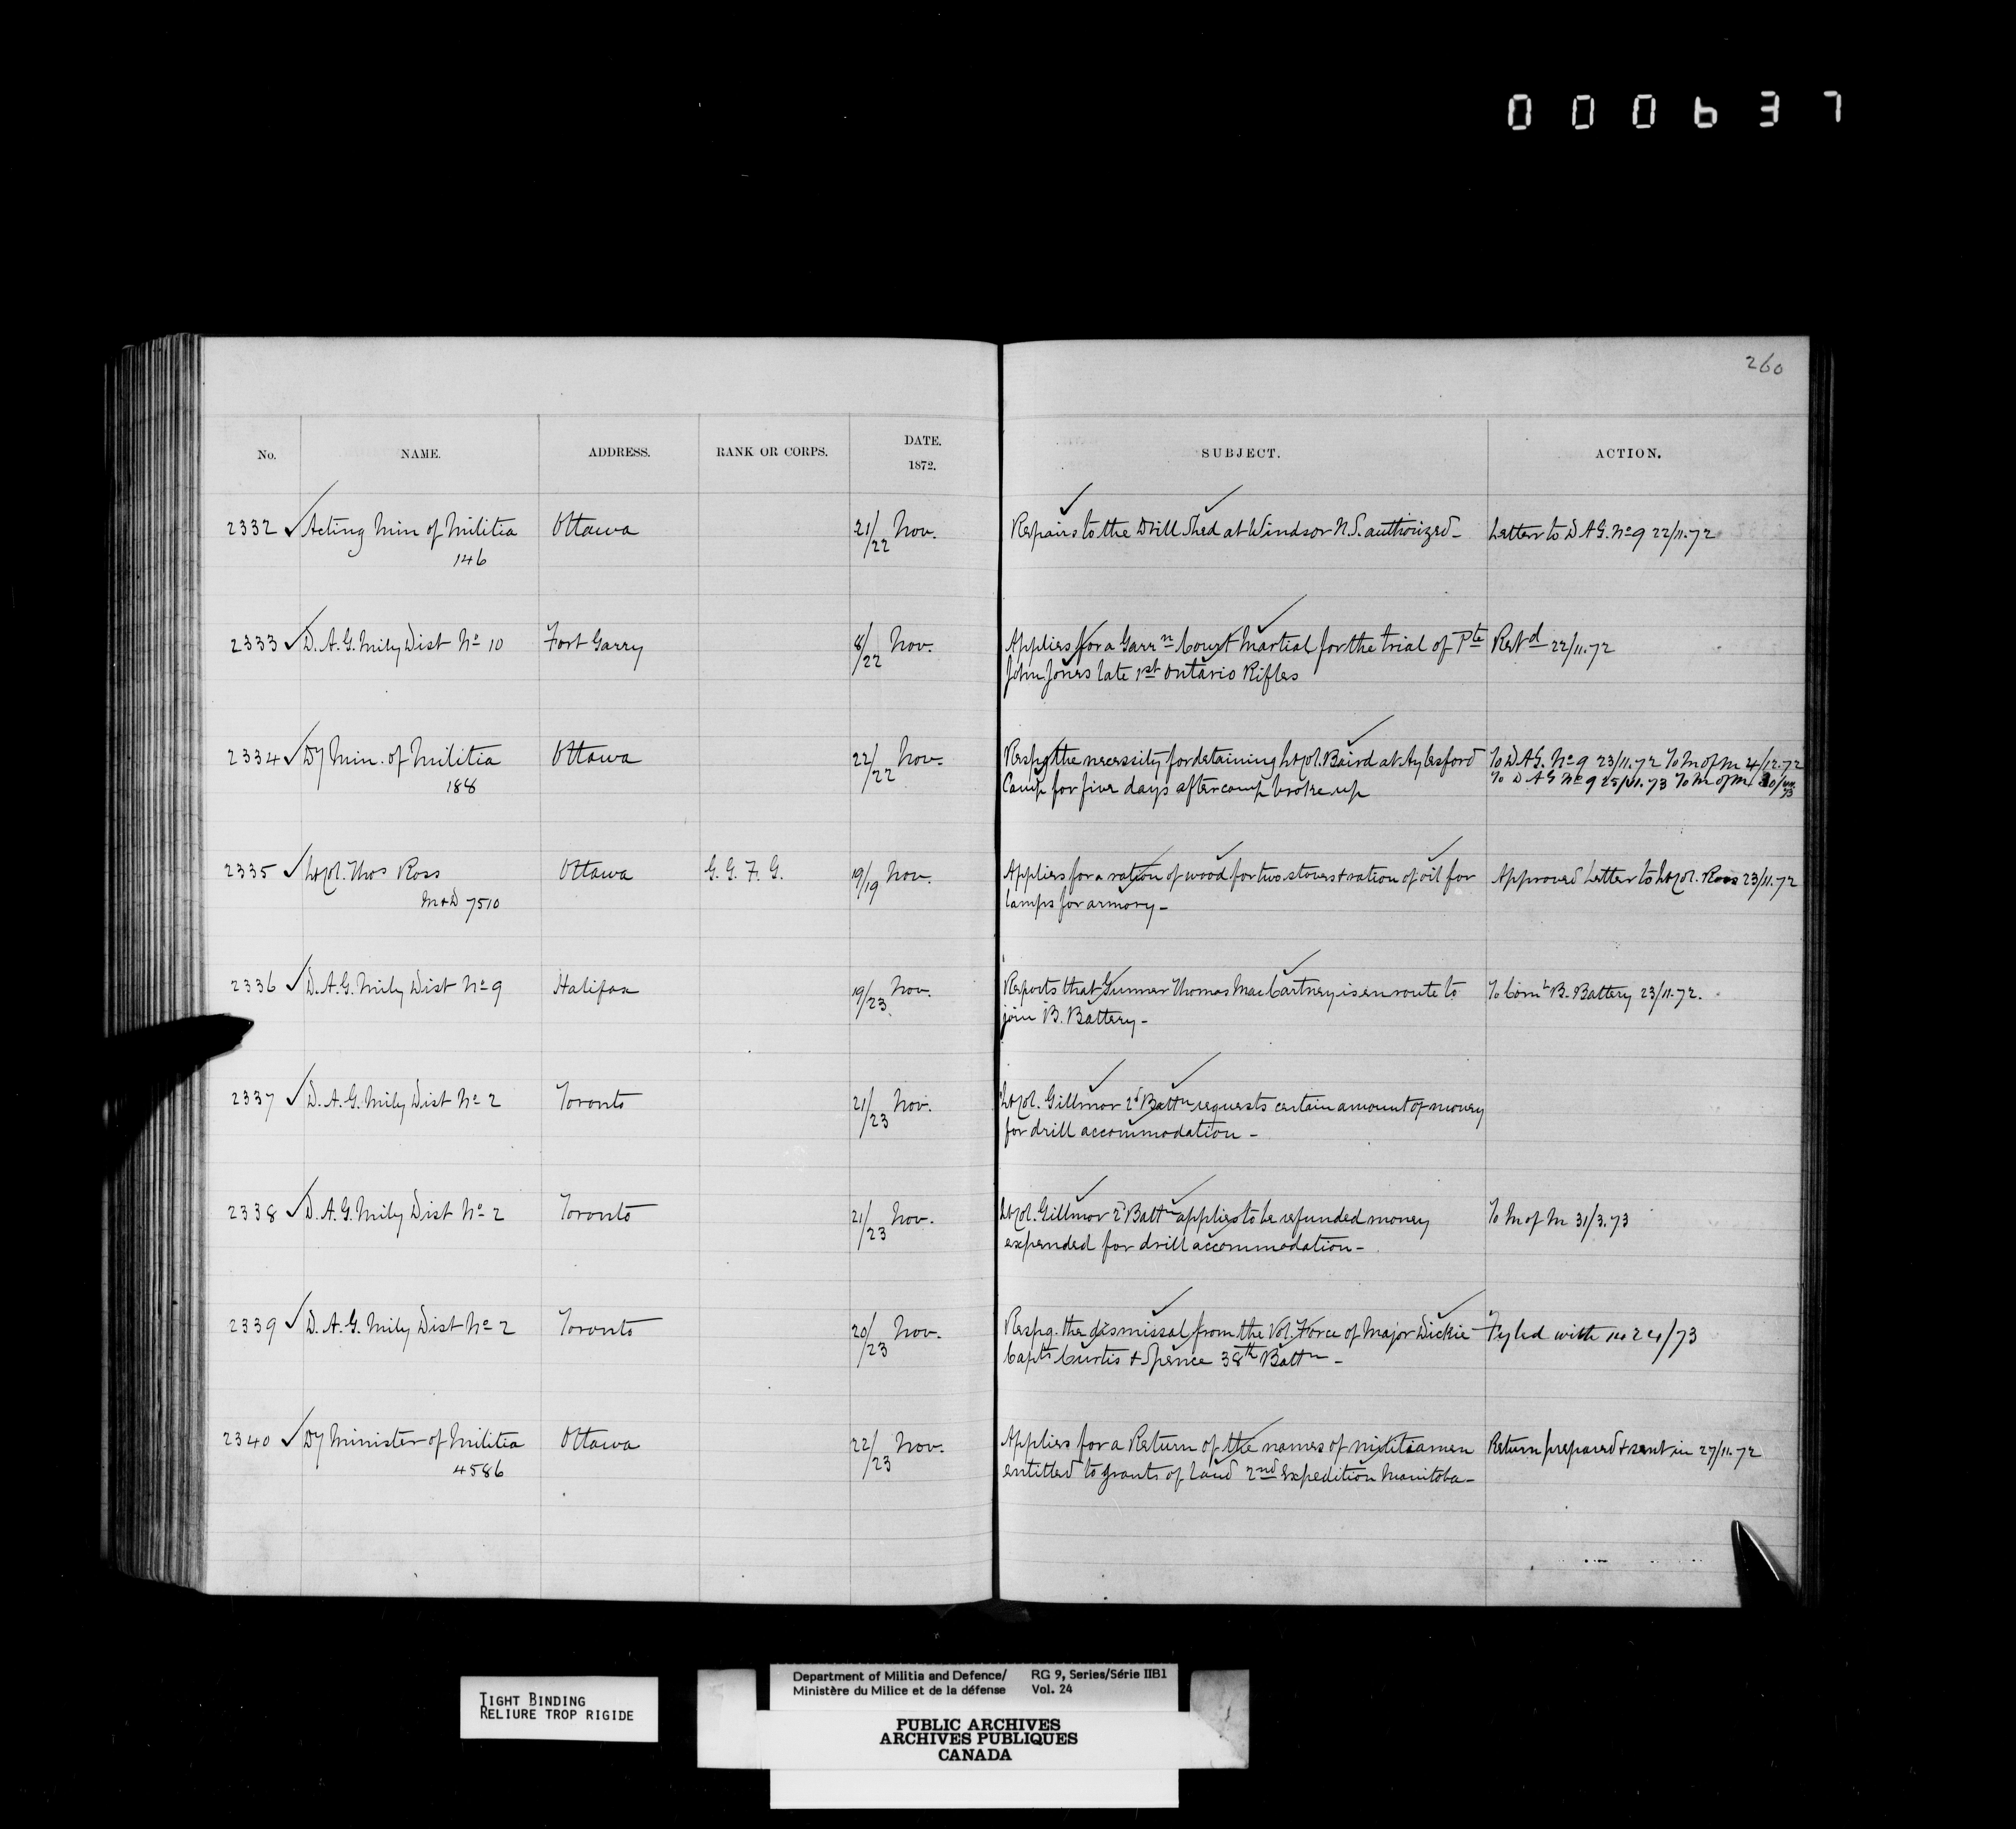 000637
260
No. NAME. ADDRESS. RANK OR CORPS. DATE. 1872. SUBJECT. ACTION.
2332 ✓ Acting Min of Militia Ottawa 21/22 Nov. Repairs to the Drill Shed at Windsor N.S. authorized - Letter to D A G. No 9 22/11.72
146
2333 ✓ D. A. G. Mily Dist No 10 Fort Garry 8/22 Nov. Applies for a Garrn Court Martial for the trial of Pte Retd 22/11.72
John Jones late 1st Ontario Rifles
2334 ✓ Dy Min. of Militia Ottawa 22/22 Nov. Respg the necessity for detaining Lt Col. Baird at Aylesford To D A G. No 9 23/11.72 To M of M 4/12.72
188 Camp for five days after camp broke up To D A G No 9 25/ 73 To M of M
2335 ✓ Lt Col. Thos Ross Ottawa G. G. F. G. 19/19 Nov. Applies for a ration of wood for two stoves + ration of oil for Approved Letter to Lt Col. Ross 23/11.72
M+D 7510 lamps for armory -
2336 ✓ D. A. G. Mily Dist No 9 Halifax 19/23 Nov. Reports that Gunner Thomas MacCartney is en route to To Comt B. Battery 23/11.72.
join B. Battery -
2337 ✓ D. A. G. Mily Dist No 2 Toronto 21/23 Nov. Lt Col. Gillmor 2d Battn requests certain amount of money
for drill accommodation -
2338 ✓ D. A. G. Mily Dist No 2 Toronto 21/23 Nov. Lt Col. Gillmor 2d Battn applies to be refunded money To M of M 31/3.73
expended for drill accommodation -
2339 ✓ D. A. G. Mily Dist No 2 Toronto 20/23 Nov. Respg. the dismissal from the Vol. Force of Major Dickie Fyled with 1424/73
Capts Curtis + Spence 38th Battn -
2340 ✓ Dy Minister of Militia Ottawa 22/23 Nov. Applies for a Return of the names of militiamen Return prepared + sent in 27/11.72
4586 entitled to grants of land 2nd Expedition Manitoba -
TIGHT BINDING
RELIURE TROP RIGIDE
Department of Militia and Defence/ RG 9, Series/Série IIB1
Ministère du Milice et de la défense Vol. 24
PUBLIC ARCHIVES
ARCHIVES PUBLIQUES
CANADA